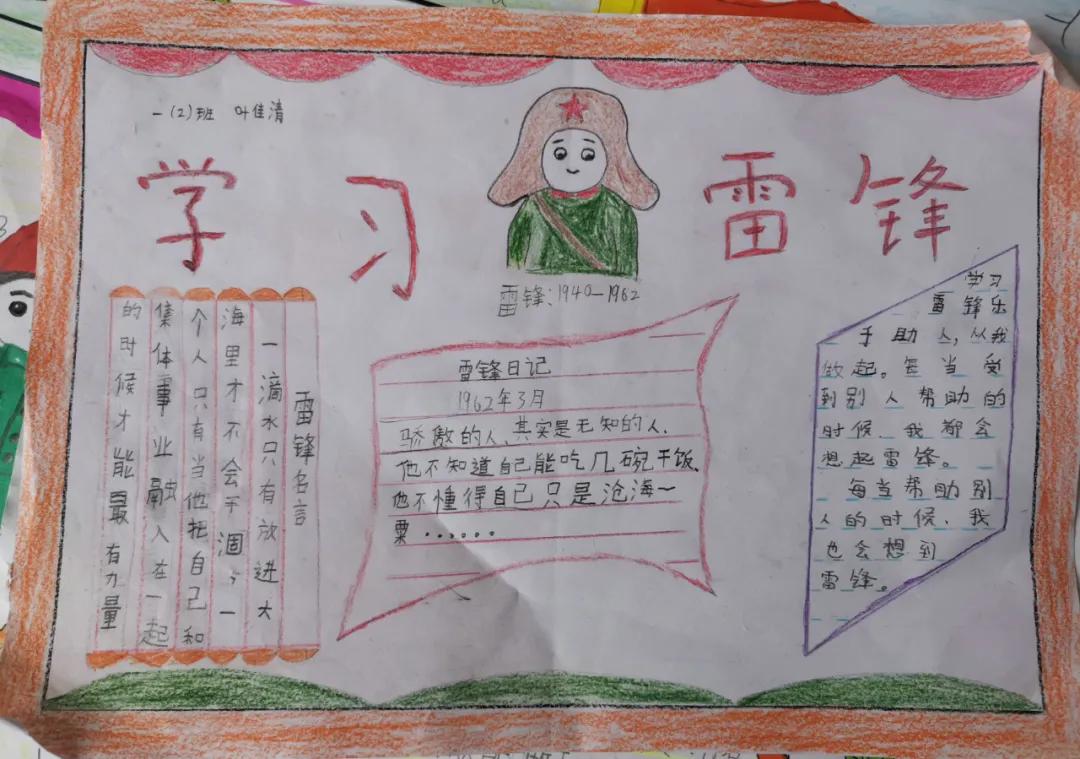 一(2)班 叶佳清
学习雷锋
雷锋:1940—1962
雷锋名言
一滴水只有放进大
海里才不会干涸,一
个人只有当他把自己和
集体事业融入在一起
的时候才能最有力量
雷锋日记
1962年3月
骄傲的人、其实是无知的人.
他不知道自己能吃几碗干饭、
他不懂得自己只是沧海一
粟......
学习
雷锋乐
于助人,从我
做起。每当受
到别人帮助的
时候、我都会
想起雷锋。
每当帮助别
人的时候、我
也会想到
雷锋。